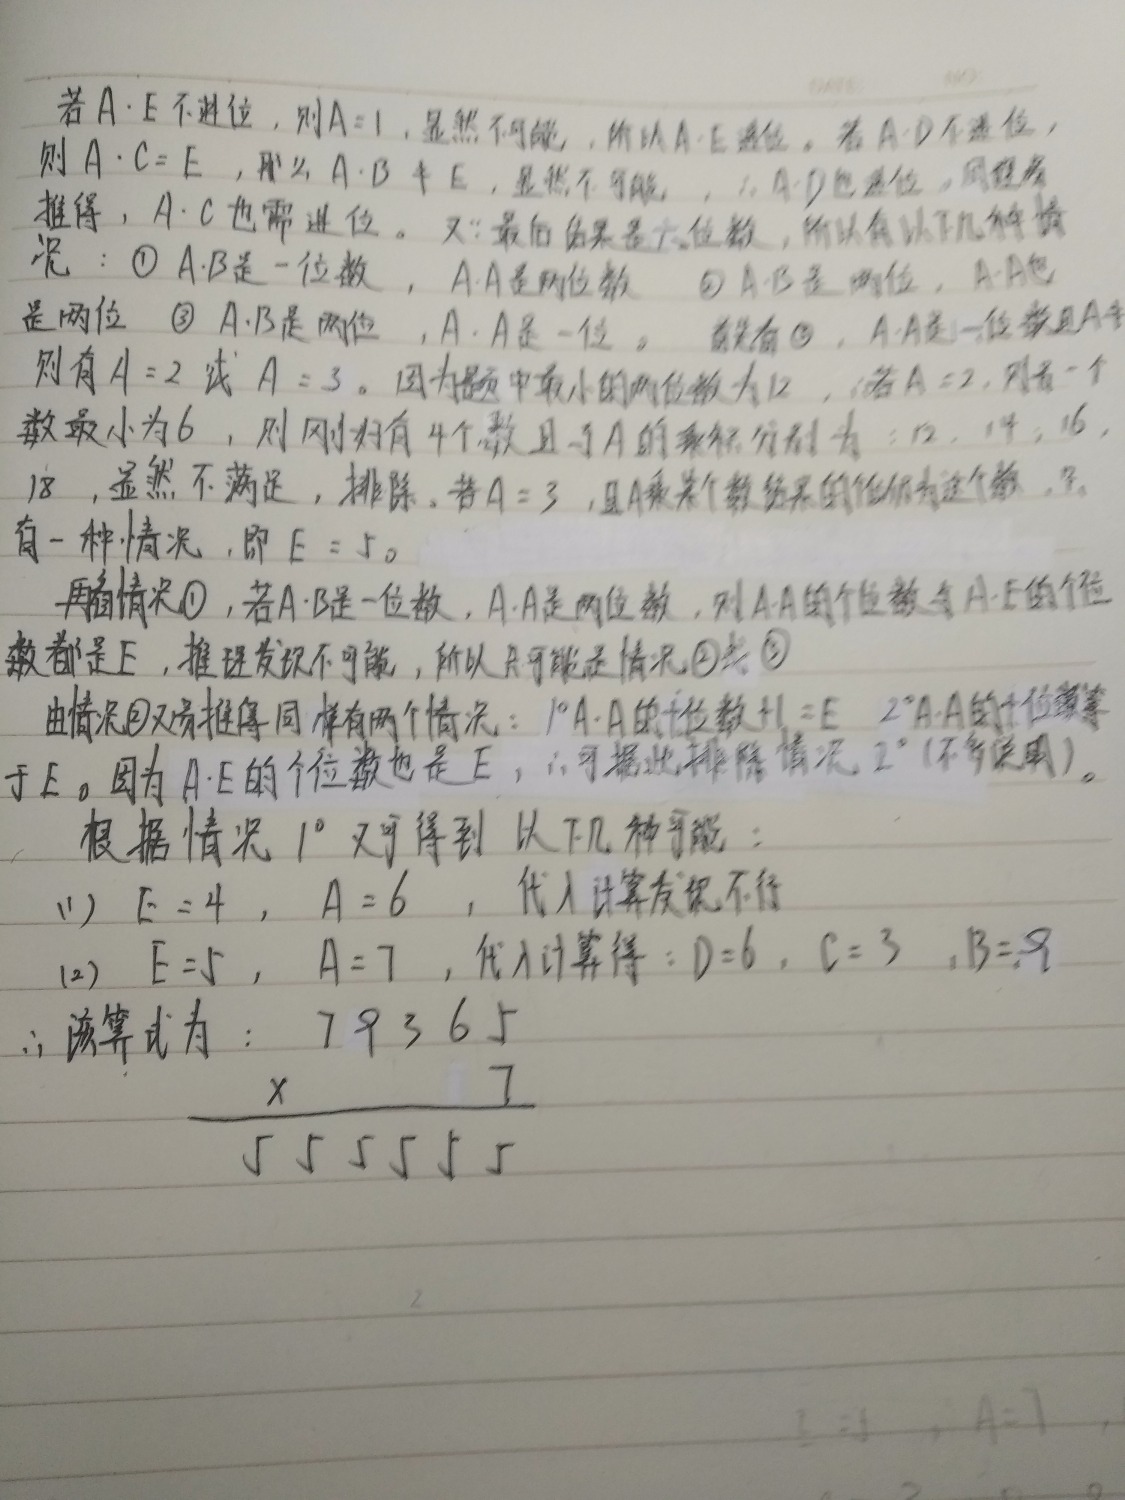 若A·E不进位，则A=1，显然不可能，所以A·E进位。若A·D不进位，
则A·C=E，那么A·B≠E，显然不可能，∴A·D也进位，同理
推得，A·C也需进位。又∵最后结果是六位数，所以有以下几种情
况：①A·B是一位数，A·A是两位数 ②A·B是两位，A·A也
是两位 ③A·B是两位，A·A是一位。 首先看③，A·A是一位数且A≠
则有A=2或A=3。因为题中最小的两位数为12，∴若A=2，则有一个
数最小为6，则刚好有4个数且与A的乘积分别为：12，14，16，
18，显然不满足，排除。若A=3，且A乘某个数结果的个位仍为这个数，只
有一种情况，即E=5。
再看情况①，若A·B是一位数，A·A是两位数，则A·A的个位数与A·E的个位
数都是E，推理发现不可能，所以只可能是情况②或③
由情况②又可推得同样有两个情况：1°A·A的十位数+1=E 2°A·A的十位数等
于E。因为A·E的个位数也是E，∴可据此排除情况2°(不多说明)。
根据情况1°又可得到以下几种可能：
(1) E=4，A=6，代入计算发现不行
(2) E=5，A=7，代入计算得：D=6，C=3，B=9
∴该算式为： 79365
× 7
555555